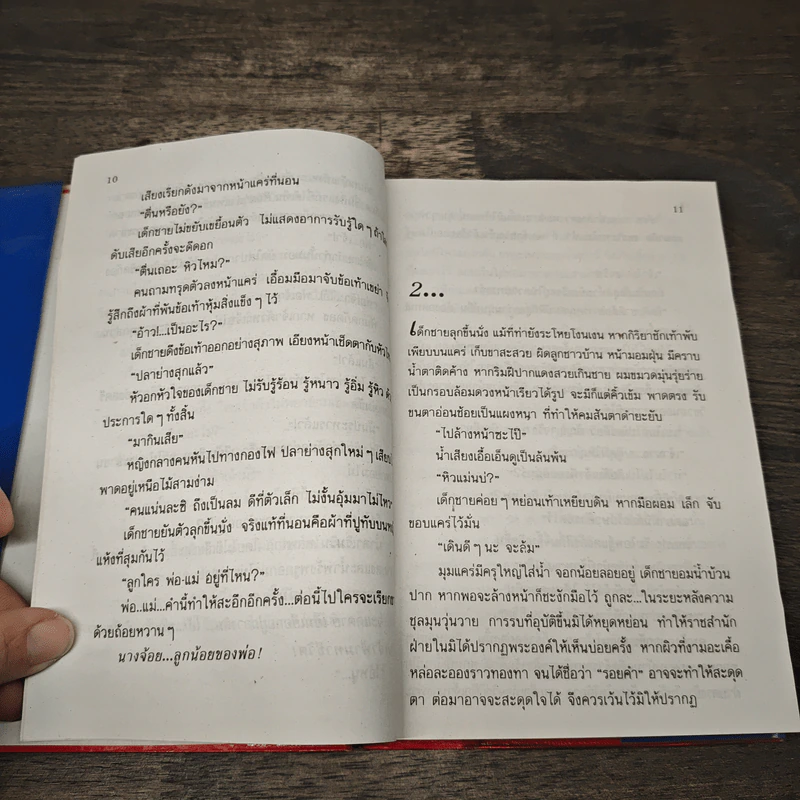 10
เสียงเรียกดังมาจากหน้าแคร่ที่นอน
"ตื่นหรือยัง?"
เด็กชายไม่ขยับเขยื้อนตัว ไม่แสดงอาการรับรู้ใดๆ
ดับเสียอีกครั้งจะดีดอก
"ตื่นเถอะ หิวไหม?"
คนถามทรุดตัวลงหน้าแคร่ เอื้อมมือมาจับข้อเท้าเขย่า
รู้สึกถึงผ้าที่พันข้อเท้าหุ้มสิ่งแข็งๆ ไว้
"อ้าว!...เป็นอะไร?"
เด็กชายดึงข้อเท้าออกอย่างสุภาพ เอียงหน้าเช็ดตากับ
"ปลาย่างสุกแล้ว"
หัวอกหัวใจของเด็กชาย ไม่รับรู้ร้อน รู้หนาว รู้อิ่ม รู้หิว
ประการใดๆ ทั้งสิ้น
"มากินเสีย"
หญิงกลางคนหันไปทางกองไฟ ปลาย่างสุกใหม่ๆ
พาดอยู่เหนือไม้สามง่าม
"คนแน่นละซิ ถึงเป็นลม ดีที่ตัวเล็ก ไม่งั้นอุ้มมาไม่ไหว
เด็กชายยันตัวลุกขึ้นนั่ง จริงแท้ที่นอนคือผ้าที่ปูทับบน
แห้งที่สุมกันไว้
"ลูกใคร พ่อ-แม่ อยู่ที่ไหน?"
พ่อ..แม่...คำนี้ทำให้สะอึกอีกครั้ง...ต่อนี้ไปใครจะเรียก
ด้วยถ้อยหวานๆ
นางจ้อย...ลูกน้อยของพ่อ!
11
2...
เด็กชายลุกขึ้นนั่ง แม้ทีท่ายังระโหยโงนเงน หากกิริยาชักเท้าพับ
เพียบบนแคร่ เก็บขาสะสวย ผิดลูกชาวบ้าน หน้ามอมฝุ่น มีคราบ
น้ำตาติดค้าง หากริมฝีปากแดงสวยเกินชาย ผมขมวดมุ่นรุ่ยร่าย
เป็นกรอบล้อมดวงหน้าเรียวได้รูป จะมีก็แต่คิ้วเข้ม พาดตรง รับ
ขนตาอ่อนช้อยเป็นแผงหนา ที่ทำให้คมสันตาดำยะยับ
"ไปล้างหน้าซะไป๊"
น้ำเสียงเอื้อเอ็นดูเป็นล้นพ้น
"หิวแม่นบ่?"
เด็กชายค่อยๆ หย่อนเท้าเหยียบดิน หากมือผอม เล็ก จับ
ขอบแคร่ไว้มั่น
"เดินดีๆ นะ จะล้ม"
มุมแคร่มีครุใหญ่ใส่น้ำ จอกน้อยลอยอยู่ เด็กชายอมน้ำบ้วน
ปาก หากพอจะล้างหน้าก็ชะงักมือไว้ ถูกละ...ในระยะหลังความ
ชุลมุนวุ่นวาย การรบที่อุบัติขึ้นมิได้หยุดหย่อน ทำให้ราชสำนัก
ฝ่ายในมิได้ปรากฏพระองค์ให้เห็นบ่อยครั้ง หากผิวที่งามอะเคื้อ
หล่อละอองราวทองทา จนได้ชื่อว่า "รอยคำ" อาจจะทำให้สะดุด
ตา ต่อมาอาจจะสะดุดใจได้ จึงควรเว้นไว้มิให้ปรากฏ